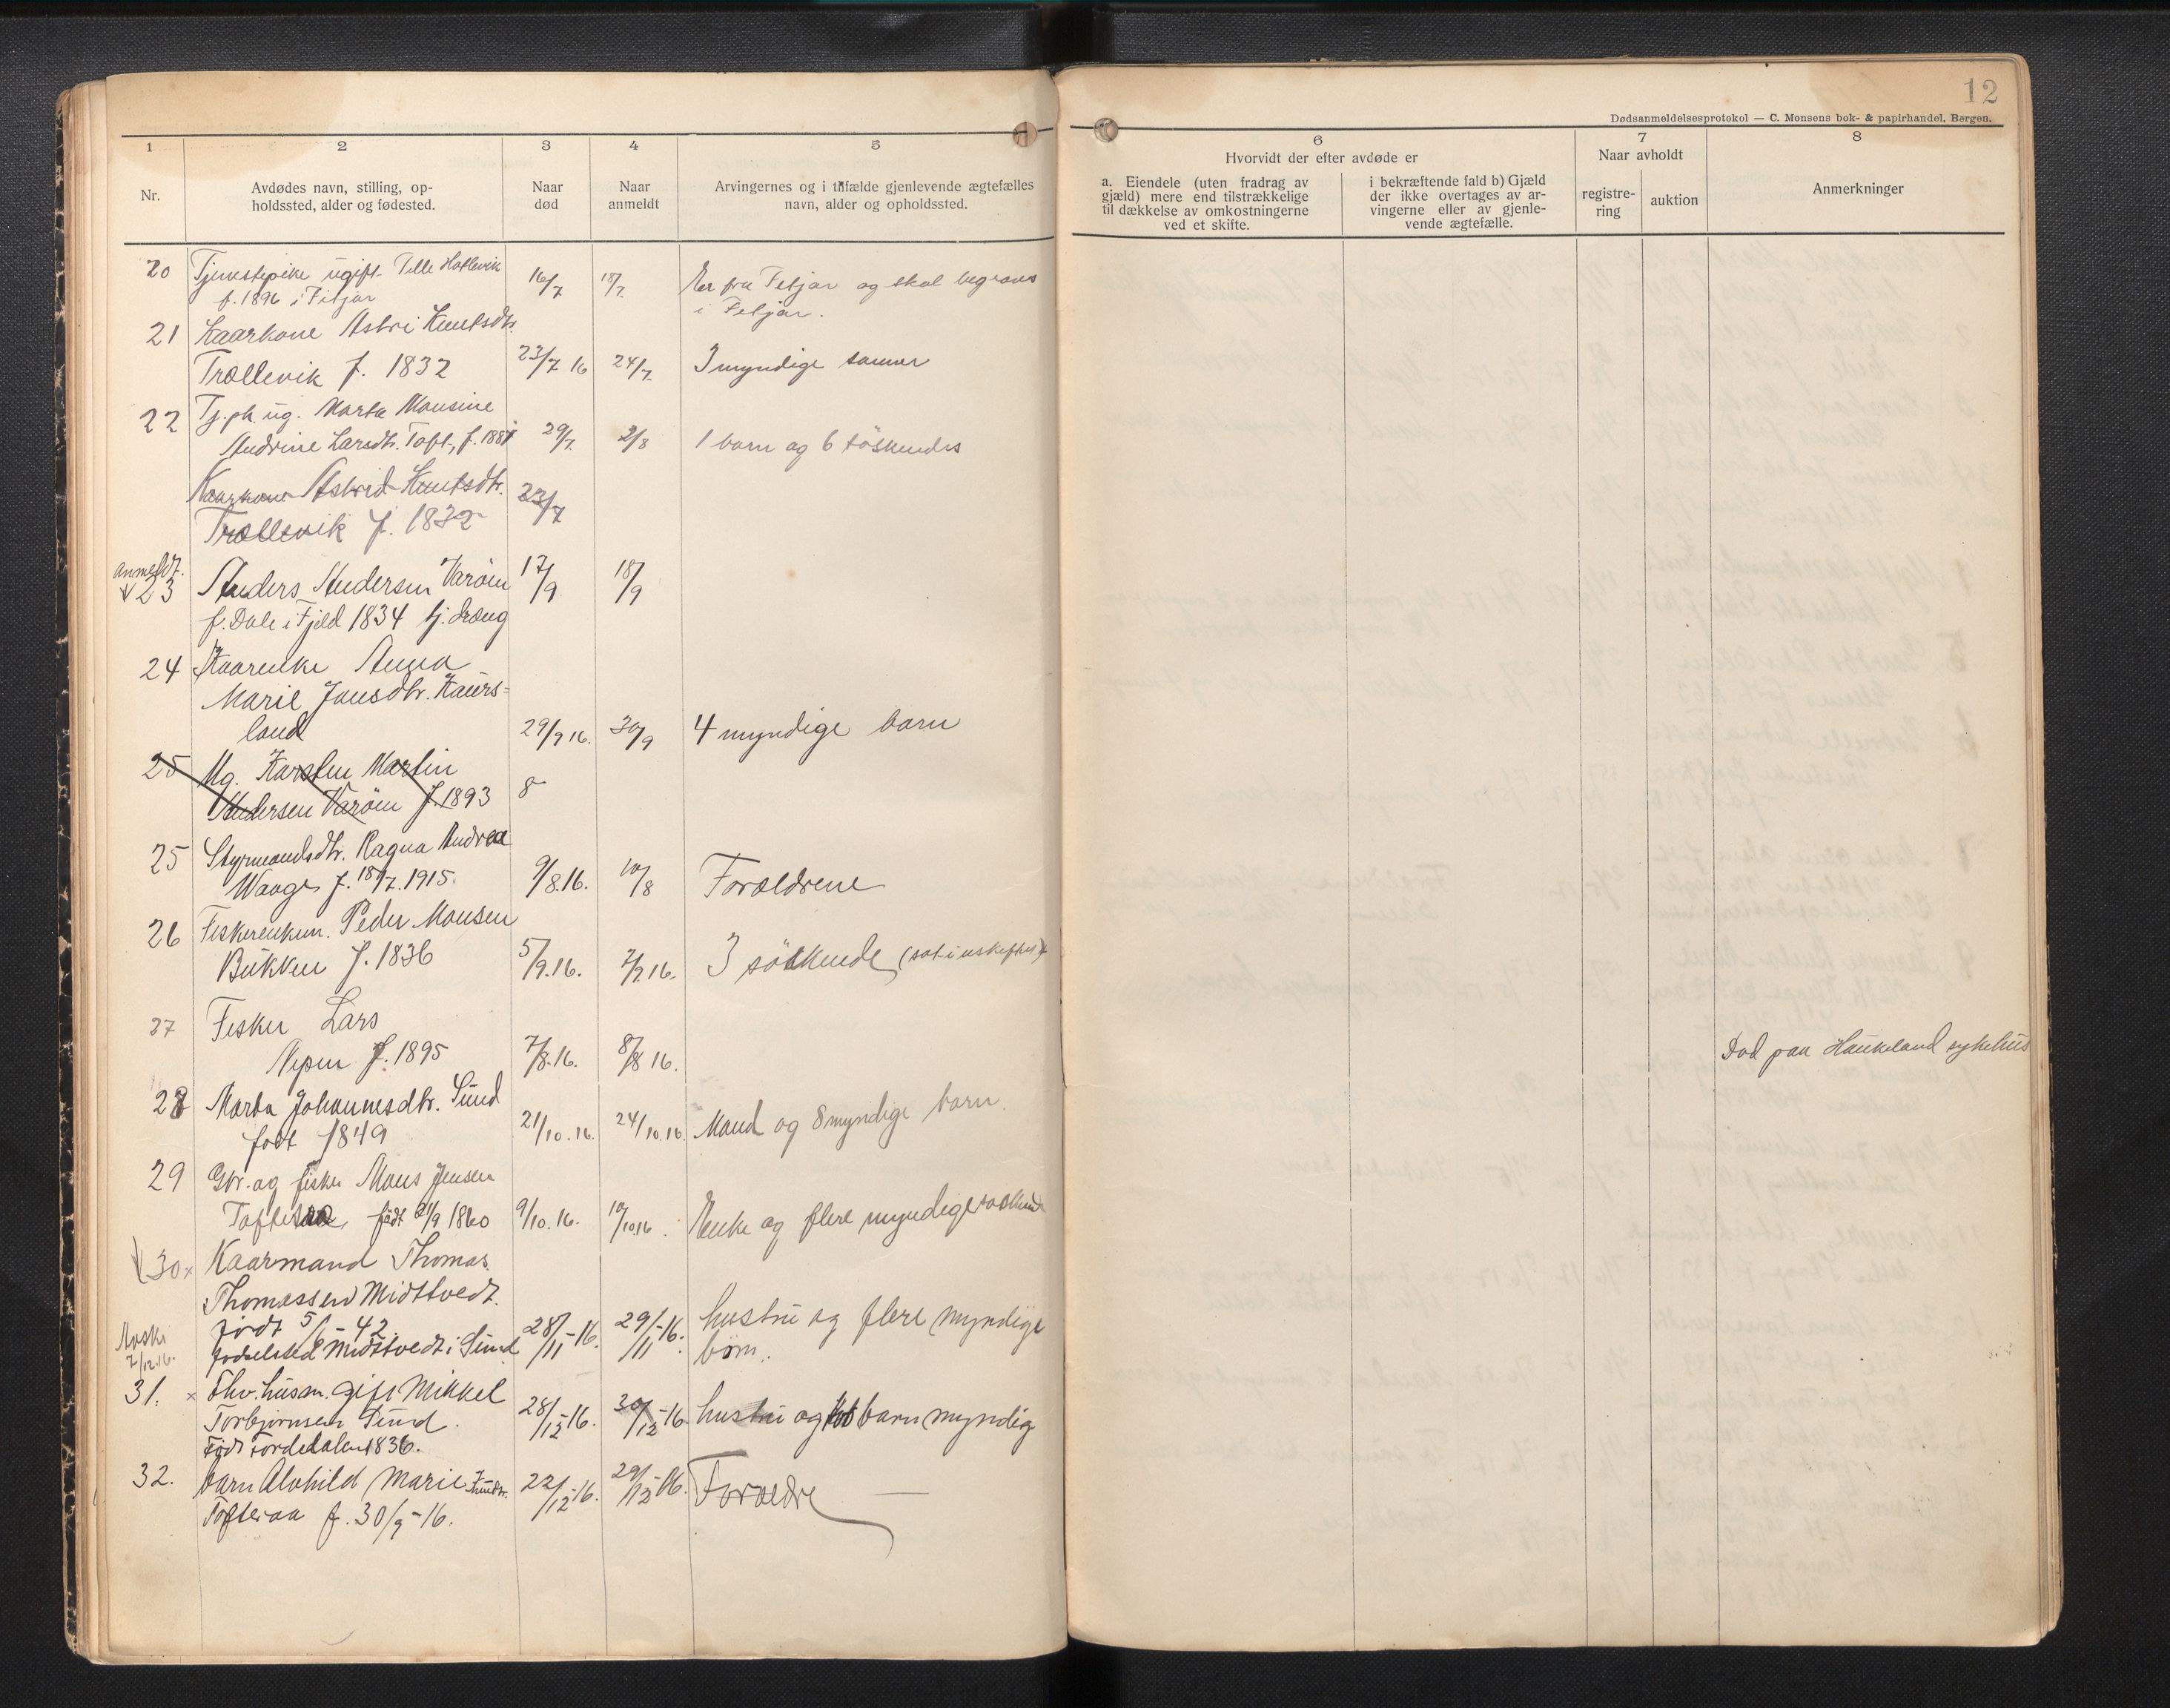 12
Dødsanmeldelsesprotokol — C. Monsens bok- & papirhandel, Bergen.
1
2
3
4
5
6
7
8
Nr.
Avdødes navn, stilling, op-
holdssted, alder og fødested.
Naar
død
Naar
anmeldt
Arvingernes og i tilfælde gjenlevende ægtefælles
navn, alder og opholdssted.
Hvorvidt der efter avdøde er
a. Eiendele (uten fradrag av
gjæld) mere end tilstrækkelige
til dækkelse av omkostningerne
ved et skifte.
i bekræftende fald b) Gjæld
der ikke overtages av ar-
vingerne eller av gjenle-
vende ægtefælle.
Naar avholdt
registre-
ring
auktion
Anmerkninger
20 Tjenestepike ugift Tille Hatlevik 16/7 18/7 Er fra Fitjar og skal begraves
f. 1896 i Fitjar i Fitjar.
21 Kaarkone Astri Knutsdtr.
Trællevik f. 1832 23/7 16 24/7 3 myndige sønner
22 Tj.pk. ug. Marta Monsine
Andrine Larsdtr. Toft, f. 1887 29/7 2/8 1 barn og 6 søskende
Kaarkone Astrid Knutsdtr. 23/7
Trællevik f. 1832
anmeldt
23 Anders Andersen Varöen 17/9 18/9
f. Dale i Fjeld 1834 tj. dræng
24 Kaarenke Anna
Marie Jonsdtr. Kaurs-
land 29/9 16. 30/9 4 myndige barn
25 Ug. Karsten Martin
Andersen Varöen f. 1893 8
25 Styrmandsdtr. Ragna Andrea
Waage f. 18/7. 1915. 9/8.16. 10/8 Forældrene
26 Fiskerenkem. Peder Monsen
Bukken f. 1836 5/9.16. 7/9.16. 3 søskende (sat i uskiftet)
27 Fisker Lars
Nipen f. 1895 7/8.16. 8/8 16. Död paa Haukeland sykehus
28 Marta Johannesdtr. Sund
født 1849 21/10.16. 24/10.16. Mand og 8 myndige barn.
29 Gbr. og fisker Mons Jensen
Tofteraa, født 21/9 1860 9/10.16. 10/10.16. Enke og flere myndige søskend
30 x Kaarmand Thomas
Thomassen Midttvedt.
født 5/6 - 42 28/11-16. 29/11-16. hustru og flere myndige
fødselsted Midttvedt i Sund børn.
7/12.16.
31. x Fhv. husm. gift Mikkel
Torbjørnsen Sund. 28/12-16. 30/12-16 hustru og barn myndig
Född Fordedalen 1836.
32. barn Alvhild Marie 22/12-16. 29/12-16. Forældre —
Tofteraa f. 30/9-16.